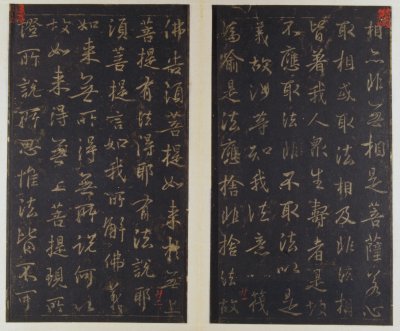 相亦非無相是菩薩若心
取相或取法相及非法相
皆著我人眾生壽者是故
不應取法非不取法以是
義故汝等知我法意以筏
為喻是法應捨非捨法故
佛告須菩提如來於無上
菩提有法得耶有法說耶
須菩提言如我所解佛義
如來無所得無所說何以
故如來得無上菩提現所
證所說所思惟法皆不可